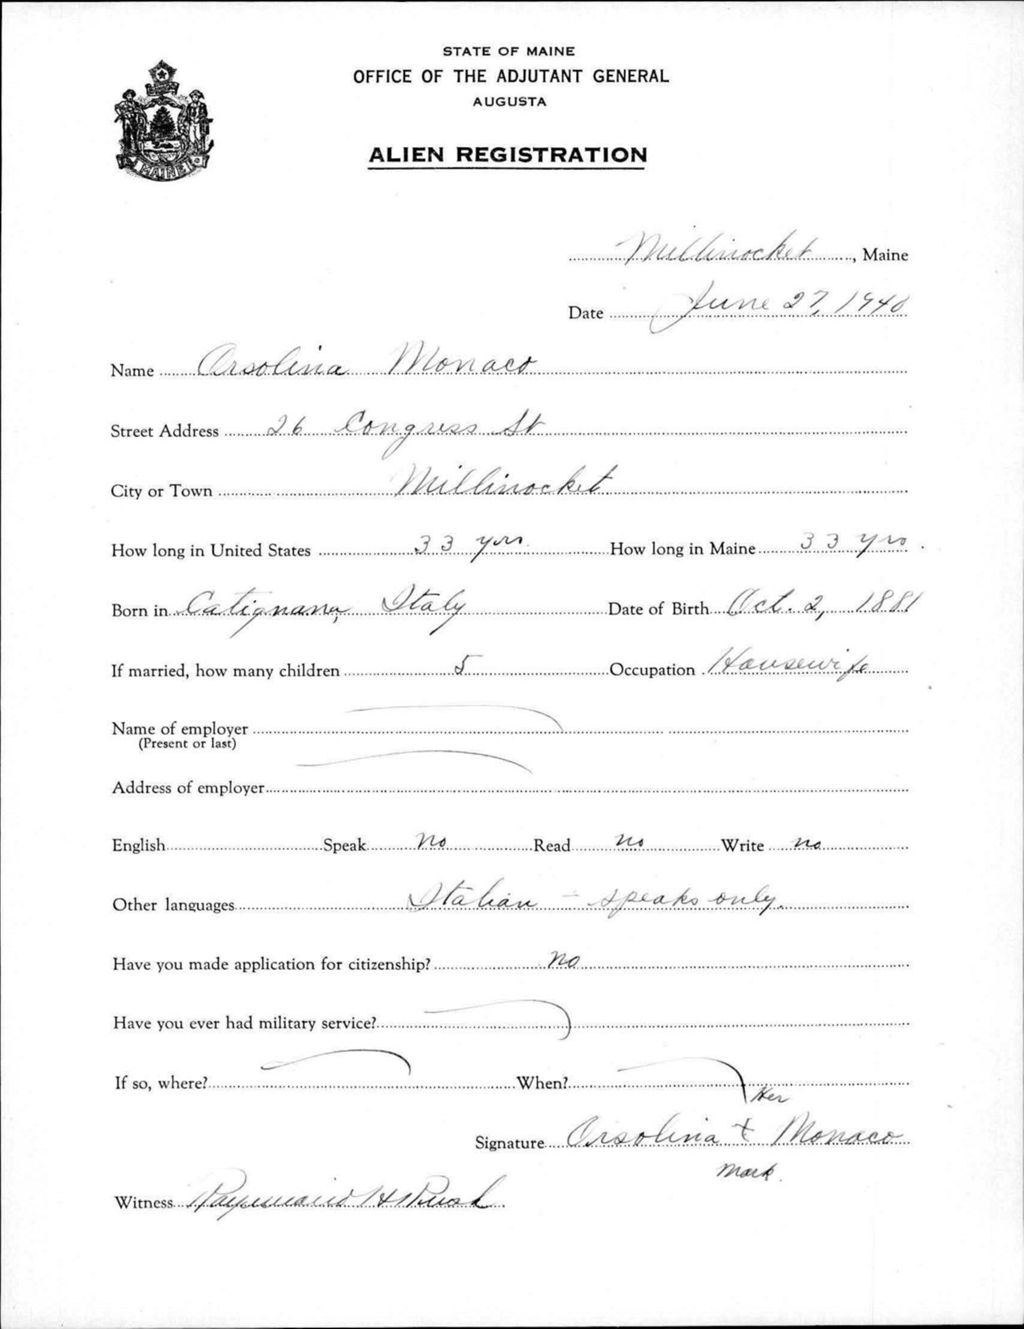 STATE OF MAINE
OFFICE OF THE ADJUTANT GENERAL
AUGUSTA
MAINE
ALIEN REGISTRATION
Millinocket, Maine
Date June 27, 1940
Name Orsolina Monaco
Street Address 26 Congress St
City or Town Millinocket
How long in United States 33 yrs. How long in Maine 33 yrs
Born in Catignana, Italy Date of Birth Oct. 2, 1881
If married, how many children 5 Occupation Housewife
Name of employer
(Present or last)
Address of employer
English Speak no Read no Write no
Other languages Italian - speaks only.
Have you made application for citizenship? no
Have you ever had military service?
If so, where? When?
Her
Signature Orsolina + Monaco
mark.
Witness Raymond H Rush